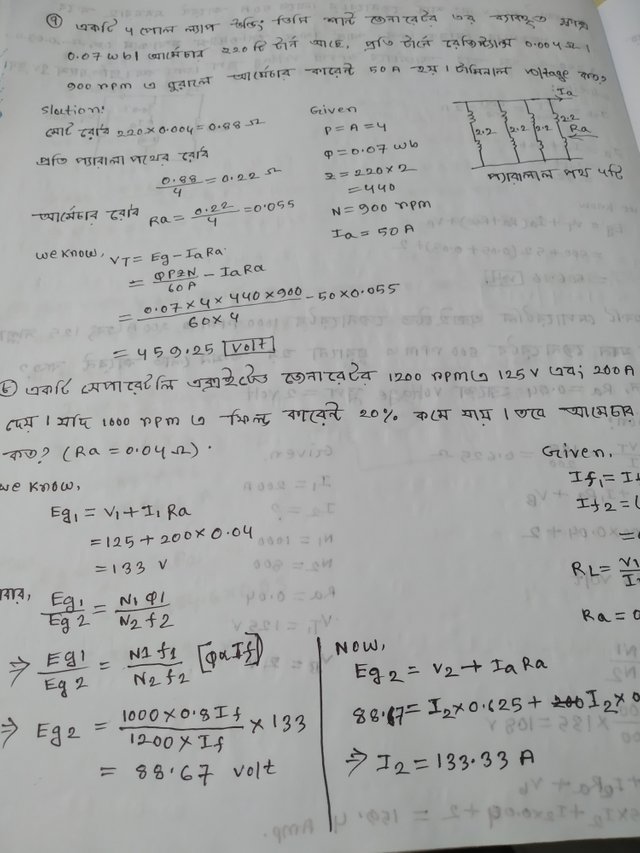 একটি 4 পোল ল্যাপ
0.07 wb। আর্মেচার 220 টি টার্ন আছে, প্রতি টার্নে রেজিস্ট্যান্স 0.004 Ω।
900 rpm এ ঘুরালে আর্মেচার কারেন্ট 50 A হয়। টার্মিনাল voltage কত?
Slation:
মোট রোধ 220 x 0.004 = 0.88 Ω
প্রতি প্যারালাল পথের রোধ
0.88/4 = 0.22 Ω
আর্মেচার রোধ Ra = 0.22/4 = 0.055
Given
P = A = 4
Φ = 0.07 wb
Z = 220 x 2
= 440
N = 900 rpm
Ia = 50 A
Ia
2.2 2.2 2.2 2.2
Ra
প্যারালাল পথ 4টি
we know, VT = Eg - IaRa
= ΦPZN/60A - IaRa
= 0.07 x 4 x 440 x 900/60 x 4 - 50 x 0.055
= 459.25 [volt]
একটি সেপারেটলি এক্সাইটেড জেনারেটর 1200 rpm এ 125 V এবং 200 A
দেয়। যদি 1000 rpm এ ফিল্ড কারেন্ট 20% কমে যায়। তবে আর্মেচার
কত? (Ra = 0.04 Ω).
we know,
Eg1 = V1 + I1 Ra
= 125 + 200 x 0.04
= 133 V
Given,
If1 = If
If2 =
RL = V1/I
Ra = 0
Eg1/Eg2 = N1 Φ1/N2 f2
⇒ Eg1/Eg2 = N1 f1/N2 f2 [Φ α If]
⇒ Eg2 = 1000 x 0.8 If/1200 x If x 133
= 88.67 volt
Now,
Eg2 = V2 + IaRa
88.67 = I2 x 0.625 + I2 x 0
⇒ I2 = 133.33 A